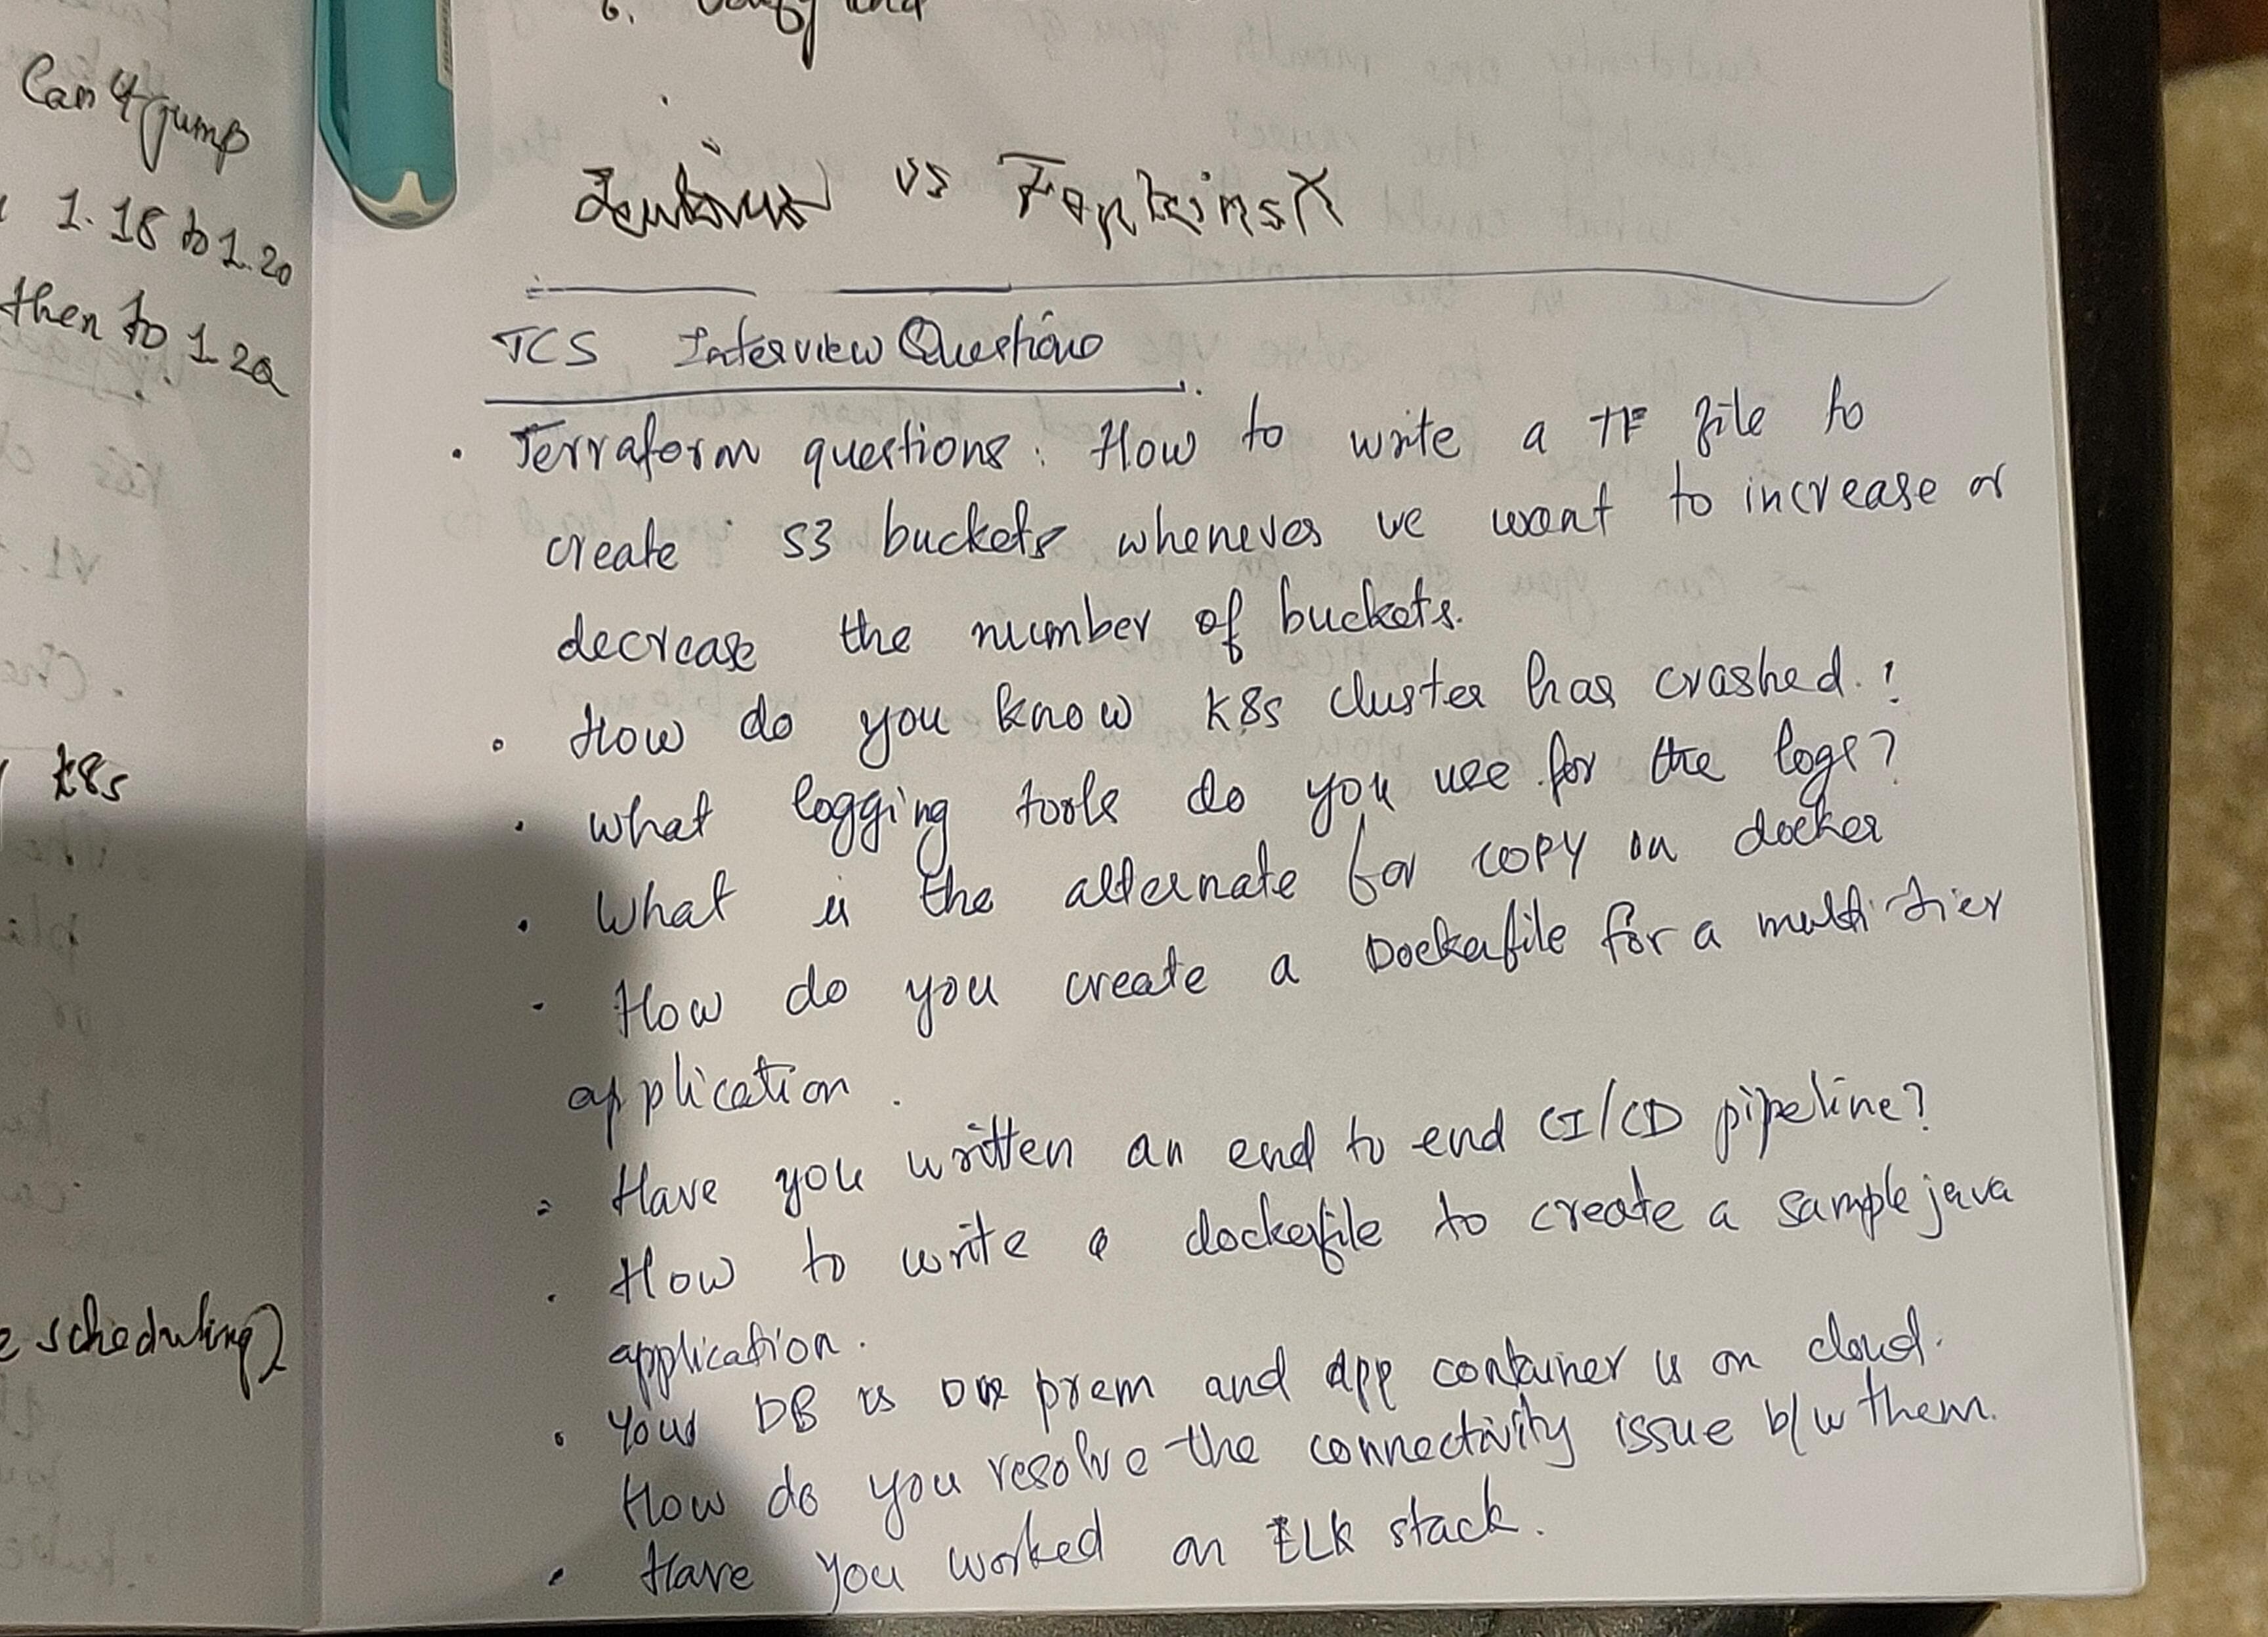 Can 4 jump
1.18 to 1.20
then to 1.20
k8s
scheduling)
6.
Jenkins vs JenkinsX
TCS Interview Questions
. Terraform questions: How to write a TF file to
create S3 buckets whenever we want to increase or
decrease the number of buckets.
. How do you know k8s cluster has crashed.!
. What logging tools do you use for the logs?
. What is the alternate for COPY in docker
. How do you create a Dockerfile for a multi-tier
application.
. Have you written an end to end CI/CD pipeline?
. How to write a dockerfile to create a sample java
application.
. Your DB is on prem and app container is on cloud.
How do you resolve the connectivity issue b/w them.
. Have you worked on ELK stack.